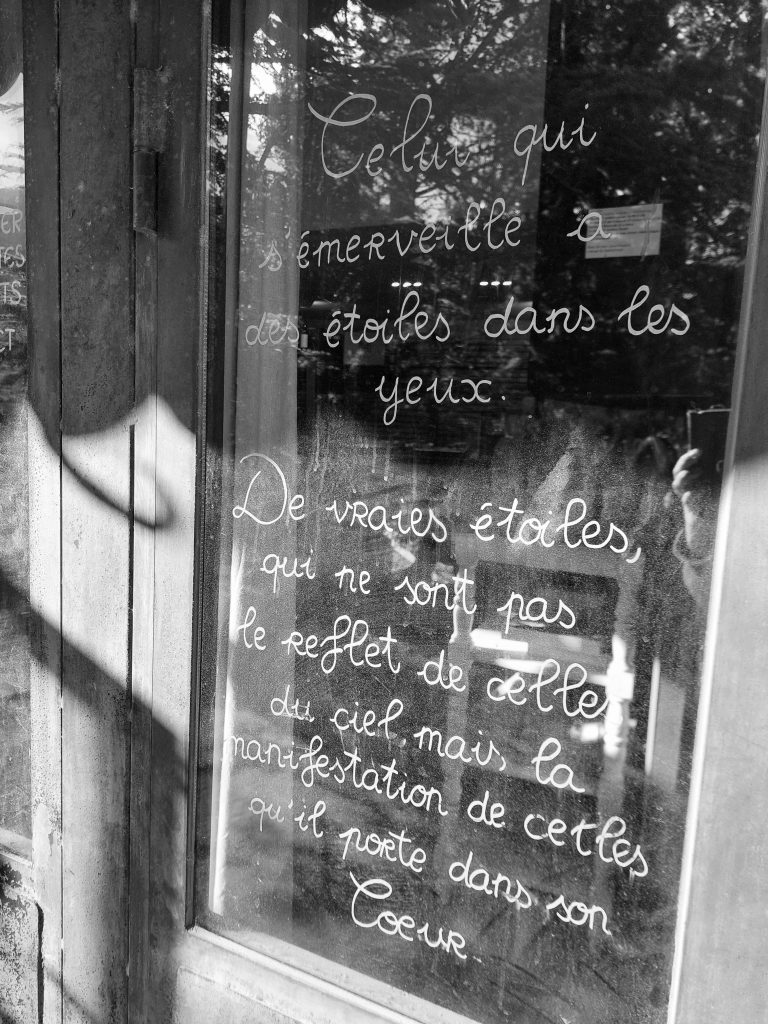 Celui qui
s'émerveille a
des étoiles dans les
yeux.
De vraies étoiles,
qui ne sont pas
le reflet de celles
du ciel, mais la
manifestation de celles
qu'il porte dans son
Coeur.
ER
TS
CT